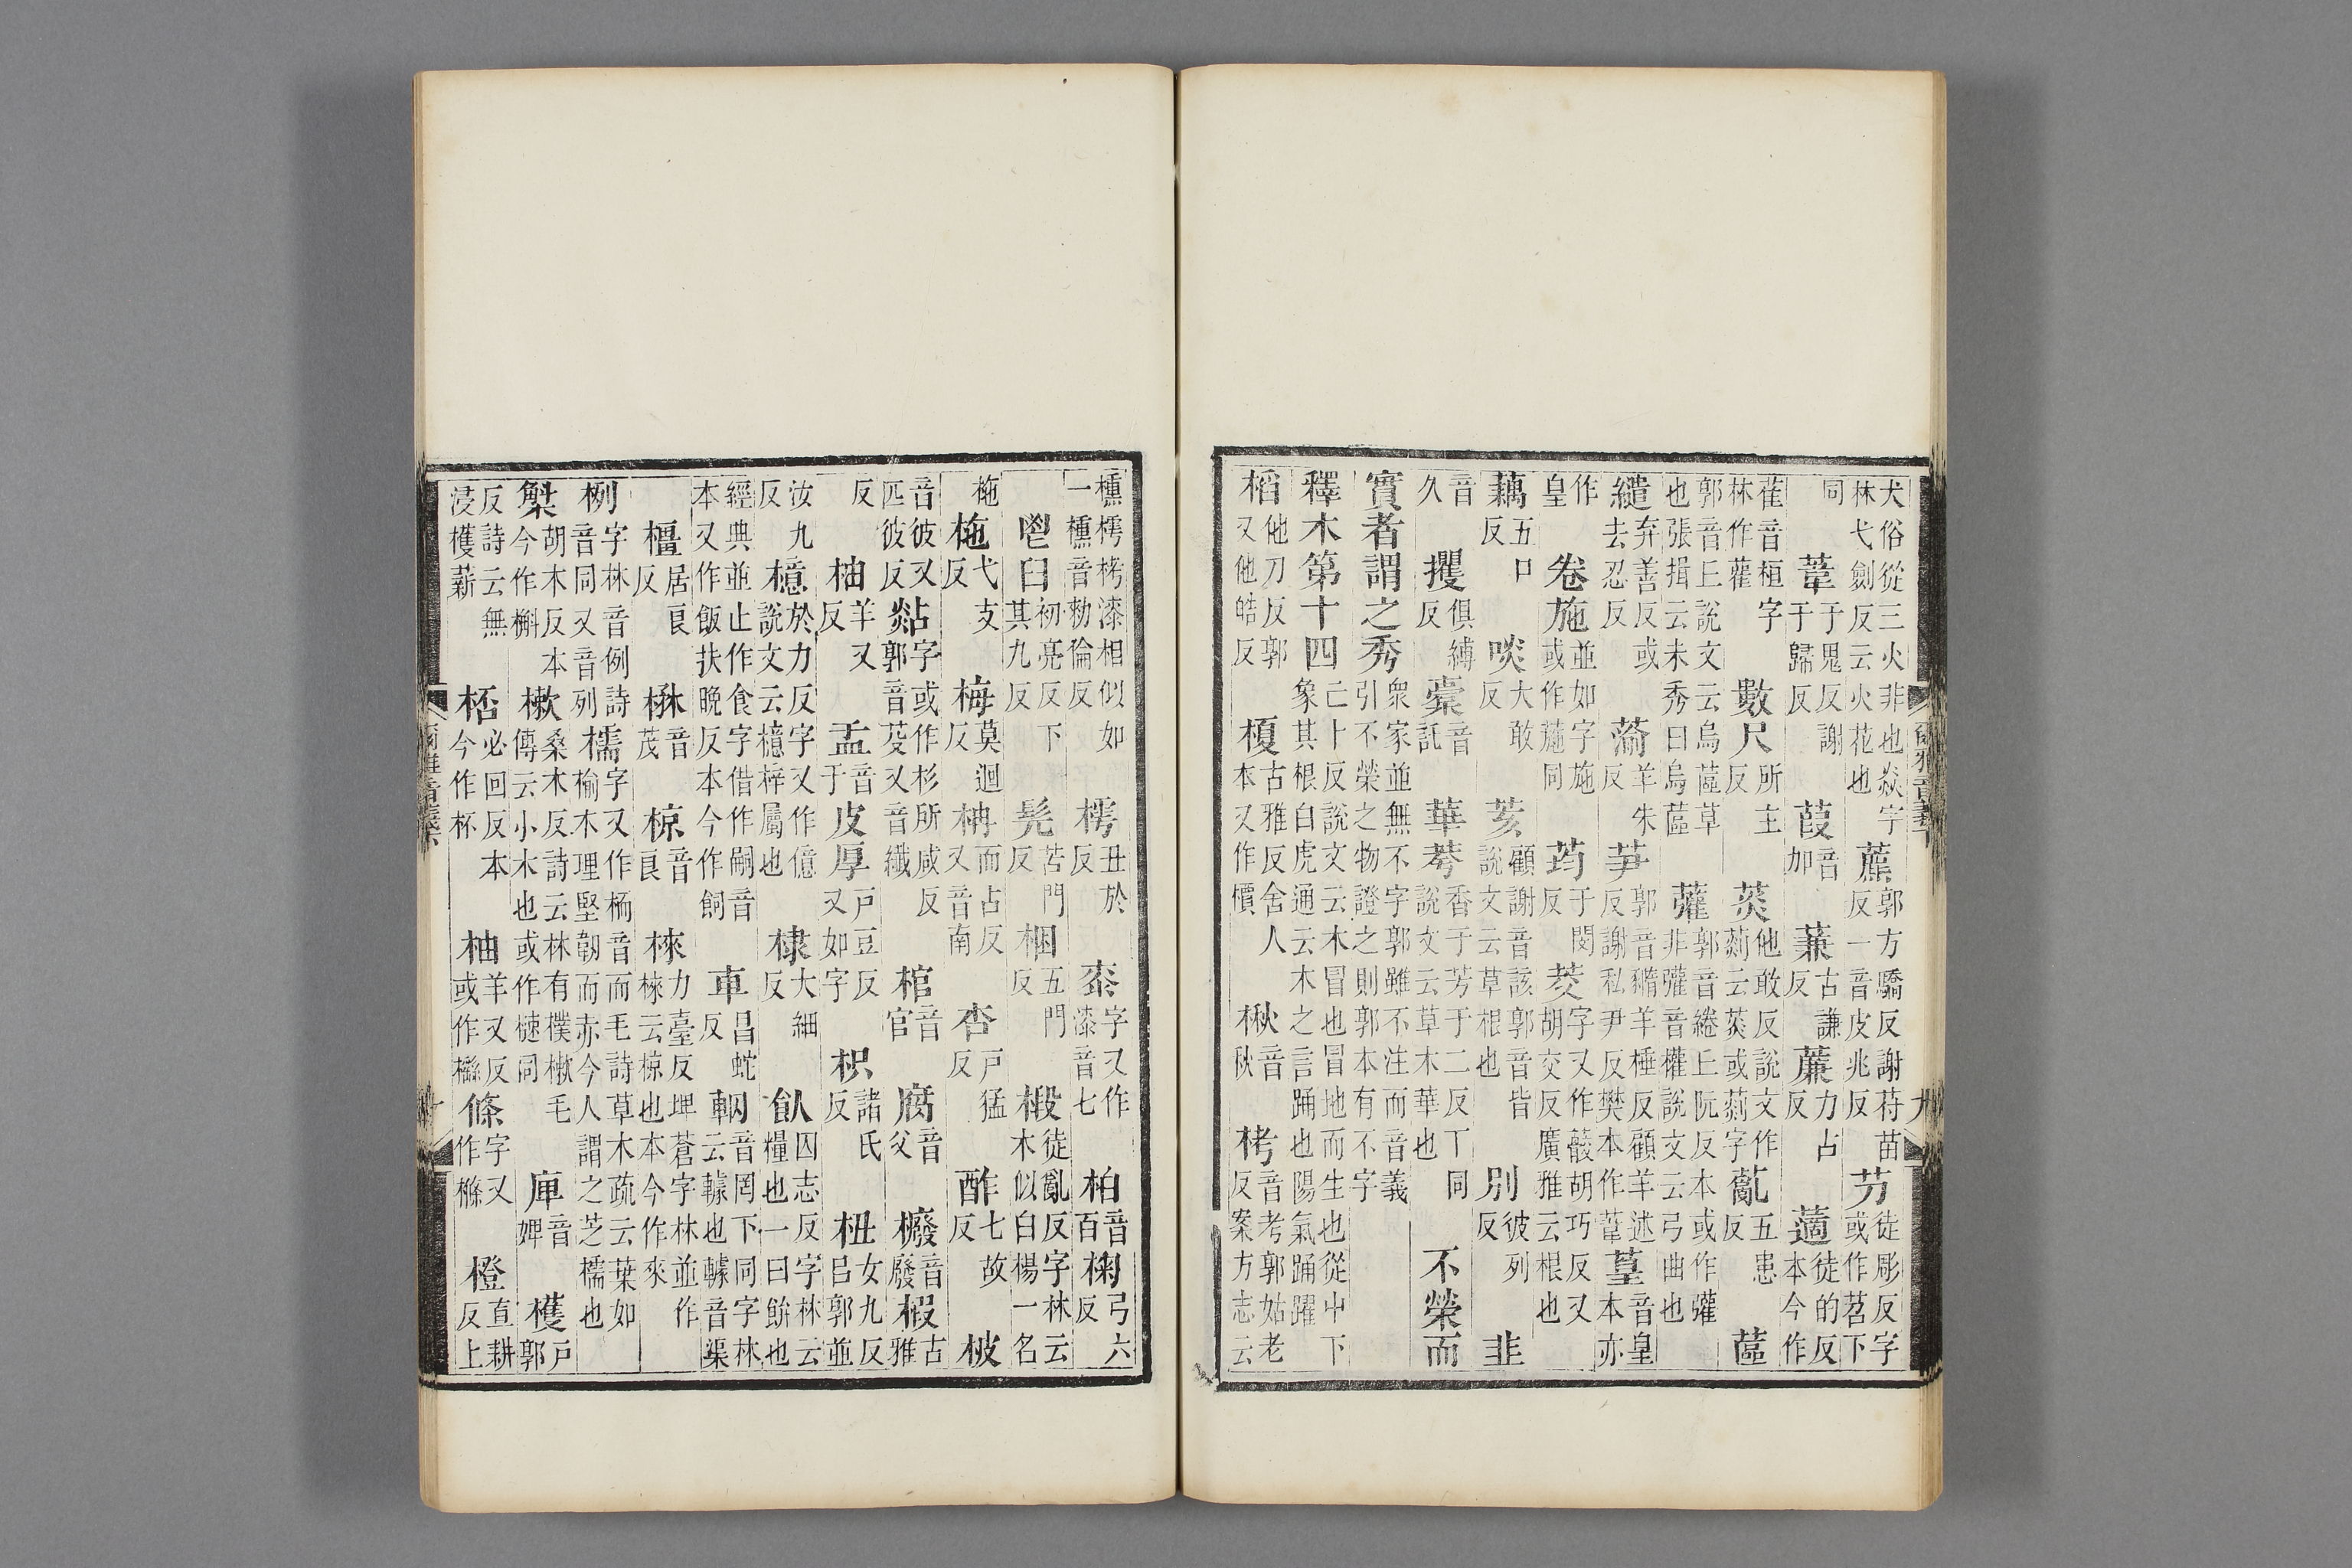 犬俗從三火非也焱字林弋劍反云火花也藨郭方驕反謝苻苗反一音皮兆反芀徒彫反字或作苕下
同葦于鬼反謝于歸反葭音加蒹古謙反薕力占反藡徒的反本今作
萑音桓字林作雚數尺所主反菼他敢反說文作云菼或字薍五患反蓲
郭音丘說文云烏蓲草也張揖云未秀曰烏蓲虇郭音綣丘阮反本或作虇非虇音權說文云弓曲也
繾弃善反或去忍反蕍羊朱反芛郭音豬羊棰反顧羊述反謝私尹反樊本作葦葟音皇本亦
作皇卷施並如字施或作葹同荺于閔反茭字又作䕧胡巧反又胡交反廣雅云根也
藕五口反啖大敢反荄顧謝音該郭音皆說文云草根也別彼列反韭
音久攫俱縛反槖音託華荂香于芳于二反丅同說文云草木華也不榮而
實者謂之秀衆家並無不字郭雖不注而音義引不榮之物證之則郭本有不字
釋木第十四亡卜反說文云木冒也冒地而生也從屮下象其根白虎通云木之言踊也陽氣踊躍
稻他刀反郭又他皓反榎古雅反舍人本又作檟楸音秋栲音考郭姑老反案方志云
櫄樗栲漆相似如一櫄音勑倫反樗丑於反桼字又作漆音七柏音百椈弓六反
鬯臼初亮反下其九反髡苦門反梱五門反椴徒亂反字林云木似白楊一名
柂柂弋支反梅莫迴反柟而占反又音南杏戶猛反酢七故反柀
音彼又匹彼反煔字或作杉所咸反郭音芟又音纖棺音官腐音父櫠音廢椵古雅
反柚羊又反盂音于皮厚戶豆反又如字枳諸氏反杻女九反呂郭並
汝九反檍於力反字又作億說文云檍梓屬也棣大細反飤囚志反字林云糧也一曰餅也
經典並止作食字借作嗣音本又作飯扶晚反本今作飼車昌蛇反輞音罔下同字林云也音渠
橿居良反楙音茂椋音良棶力臺反埤蒼字林並作棶云椋也本今作來
栵字林音例詩音同又音列檽字又作栭音而毛詩草木疏云葉如榆木理堅韌而赤今人謂之芝檽也
胡木反本今作槲樕桑木反詩云林有樸樕毛傳云小木也或作同庳音婢檴戶郭
反詩云無浸檴薪桮必回反本今作杯柚羊又反或作櫾條字又作樤橙直耕反上